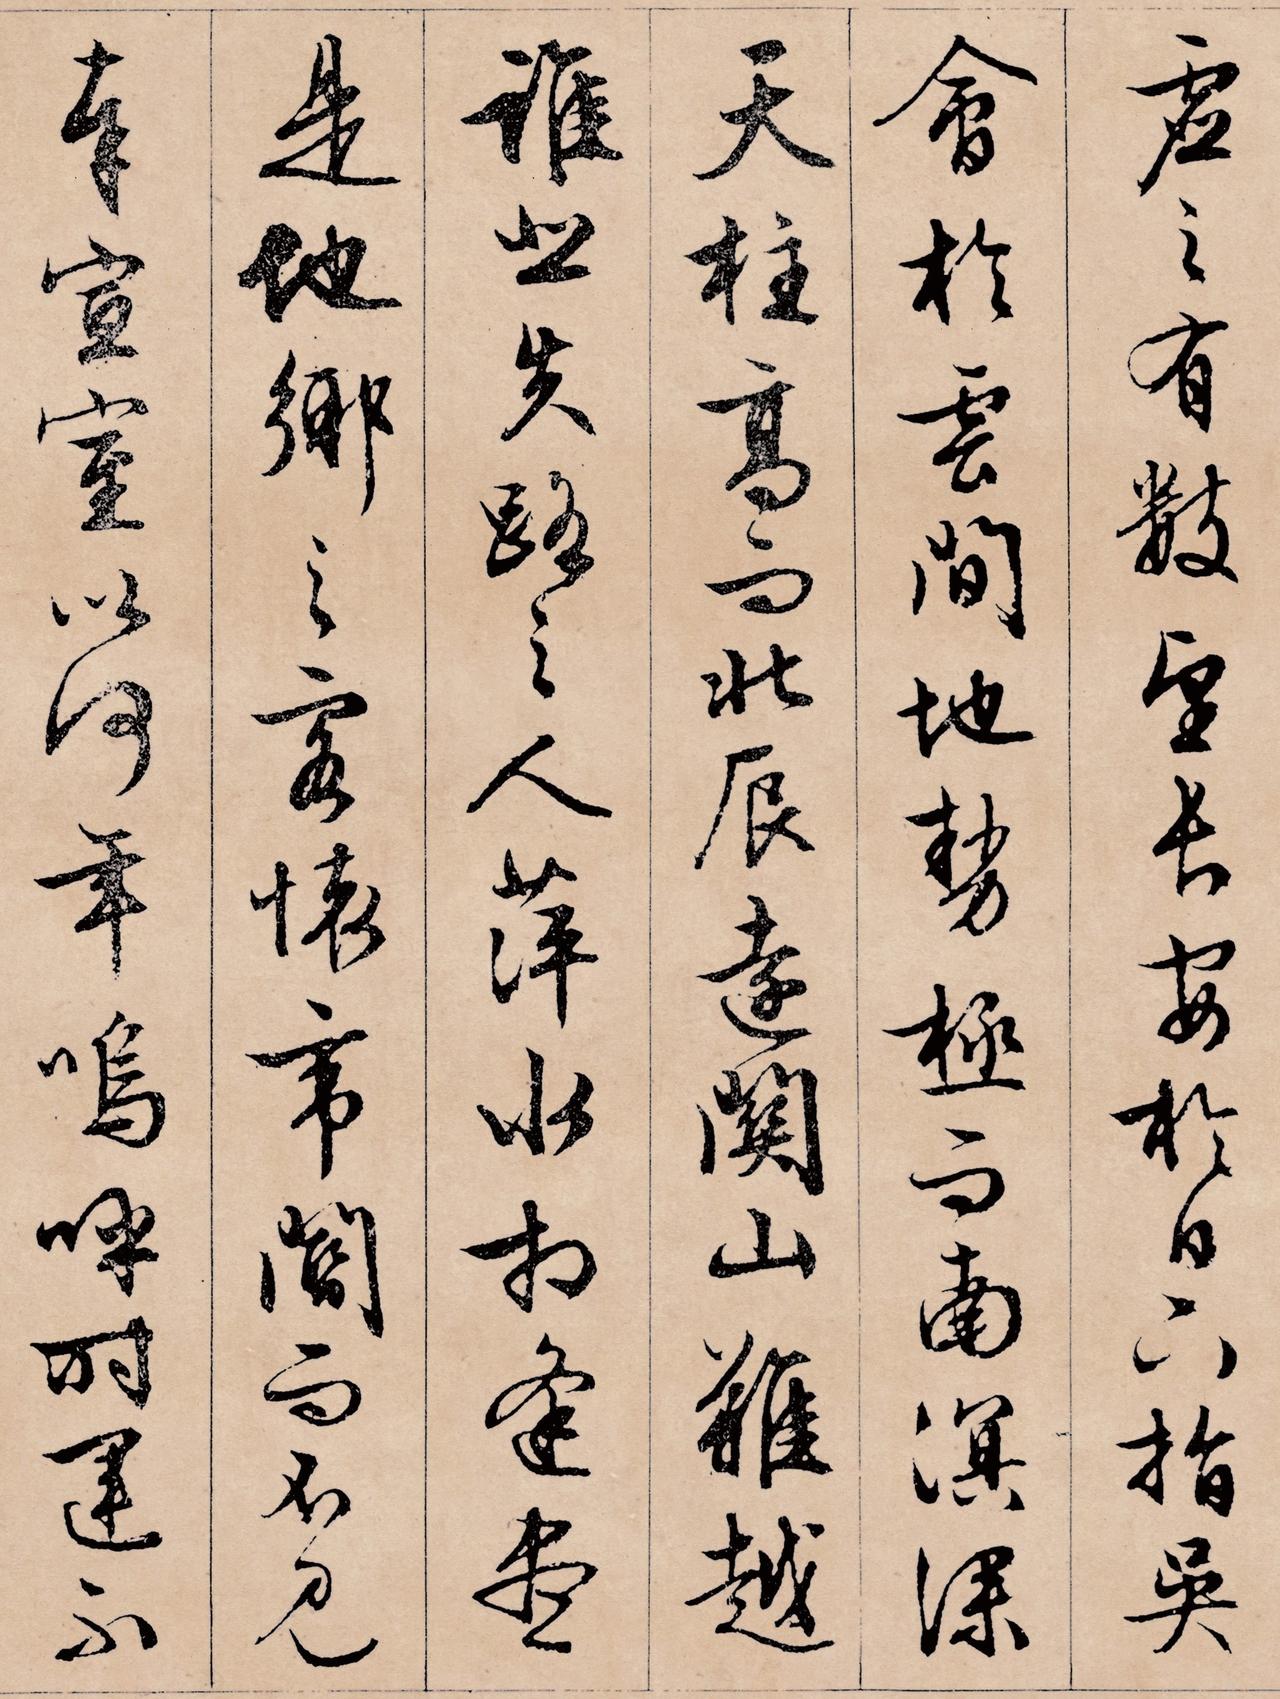 虛之有數望長安於日下指吳
會於雲間地勢極而南溟深
天柱高而北辰遠關山難越
誰悲失路之人萍水相逢盡
是他鄉之客懷帝閽而不見
奉宣室以何年嗚呼時運不